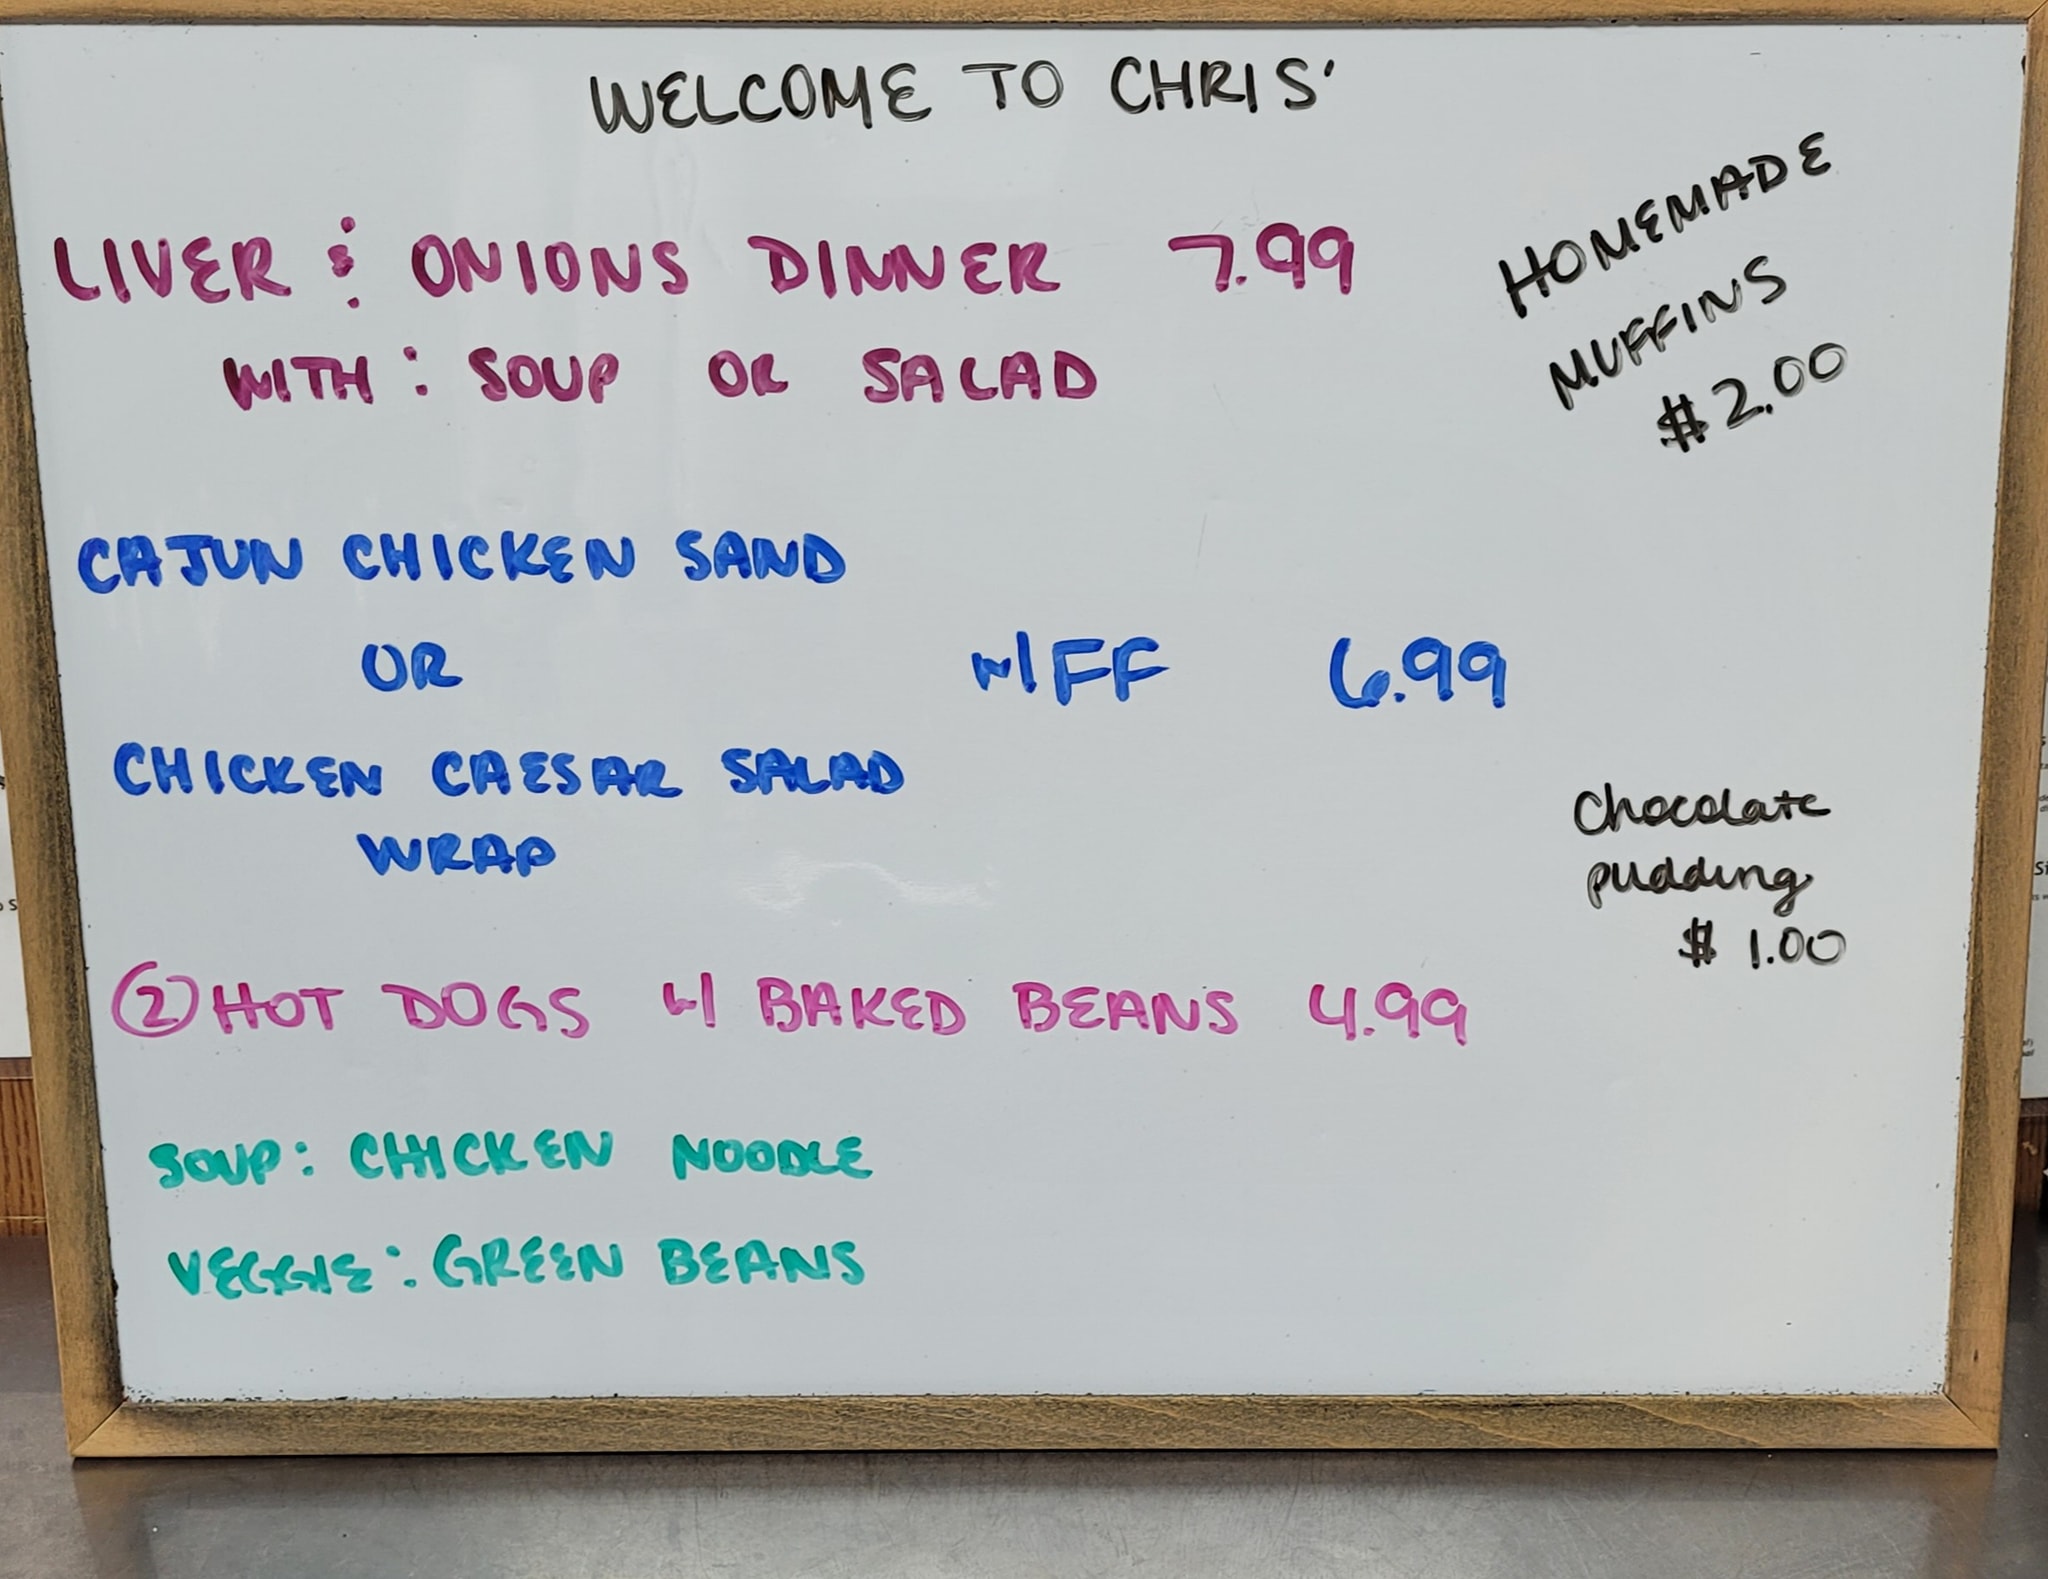 WELCOME TO CHRIS'
HOMEMADE
MUFFINS
$2.00
LIVER & ONIONS DINNER 7.99
WITH: SOUP OR SALAD
CAJUN CHICKEN SAND
OR w/FF 6.99
CHICKEN CAESAR SALAD
WRAP
Chocolate
pudding
$ 1.00
② HOT DOGS w/ BAKED BEANS 4.99
SOUP: CHICKEN NOODLE
VEGGIE: GREEN BEANS